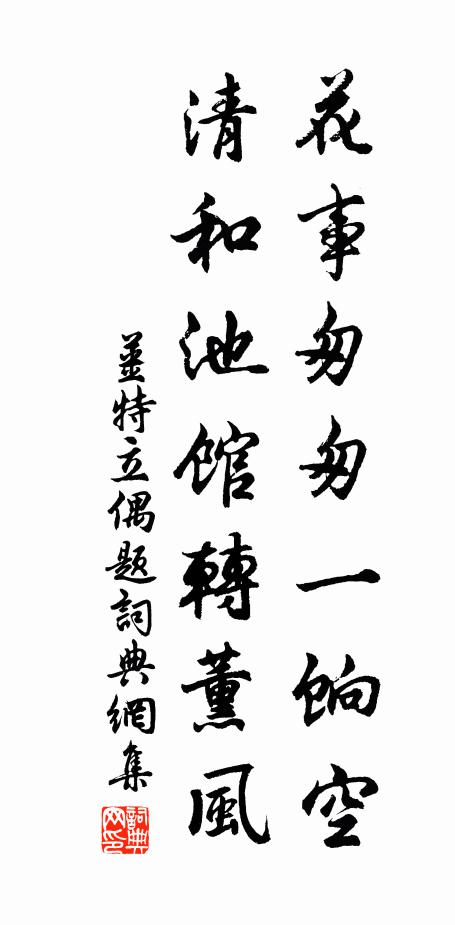 花事匆匆一餉空
清和池館轉薰風
姜特立偶題詞典網集
詞典網印